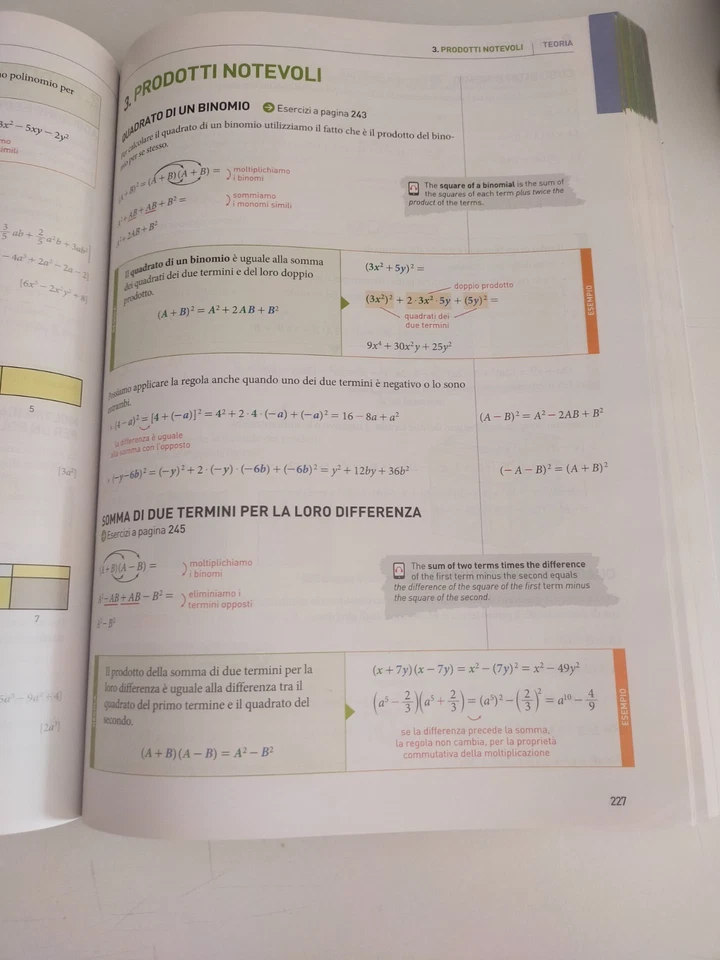 o polinomio per
3x² − 5xy − 2y²
simili
3/5 ab + 2/5 a²b + 3ab²
− 4a² + 2a² − 2a − 2]
[6x² − 2x²y² + 8]
5
[3a²]
7
5a³ − 9a² + 4]
[2a³]
3. PRODOTTI NOTEVOLI | TEORIA
3. PRODOTTI NOTEVOLI
QUADRATO DI UN BINOMIO Esercizi a pagina 243
Per calcolare il quadrato di un binomio utilizziamo il fatto che è il prodotto del bino-
mio per se stesso.
(A + B)² = (A + B)(A + B) = moltiplichiamo
i binomi
A² + AB + AB + B² = sommiamo
i monomi simili
A² + 2AB + B²
The square of a binomial is the sum of
the squares of each term plus twice the
product of the terms.
Il quadrato di un binomio è uguale alla somma
dei quadrati dei due termini e del loro doppio
prodotto.
(A + B)² = A² + 2AB + B²
(3x² + 5y)² =
doppio prodotto
(3x²)² + 2 · 3x² · 5y + (5y)² =
quadrati dei
due termini
9x⁴ + 30x²y + 25y²
ESEMPIO
Possiamo applicare la regola anche quando uno dei due termini è negativo o lo sono
entrambi.
• (4 − a)² = [4 + (−a)]² = 4² + 2 · 4 · (−a) + (−a)² = 16 − 8a + a²
(A − B)² = A² − 2AB + B²
la differenza è uguale
alla somma con l'opposto
• (−y − 6b)² = (−y)² + 2 · (−y) · (−6b) + (−6b)² = y² + 12by + 36b²
(− A − B)² = (A + B)²
SOMMA DI DUE TERMINI PER LA LORO DIFFERENZA
Esercizi a pagina 245
(A + B)(A − B) = moltiplichiamo
i binomi
A² − AB + AB − B² = eliminiamo i
termini opposti
A² − B²
The sum of two terms times the difference
of the first term minus the second equals
the difference of the square of the first term minus
the square of the second.
Il prodotto della somma di due termini per la
loro differenza è uguale alla differenza tra il
quadrato del primo termine e il quadrato del
secondo.
(A + B)(A − B) = A² − B²
(x + 7y)(x − 7y) = x² − (7y)² = x² − 49y²
(a⁵ − 2/3)(a⁵ + 2/3) = (a⁵)² − (2/3)² = a¹⁰ − 4/9
se la differenza precede la somma,
la regola non cambia, per la proprietà
commutativa della moltiplicazione
ESEMPIO
227